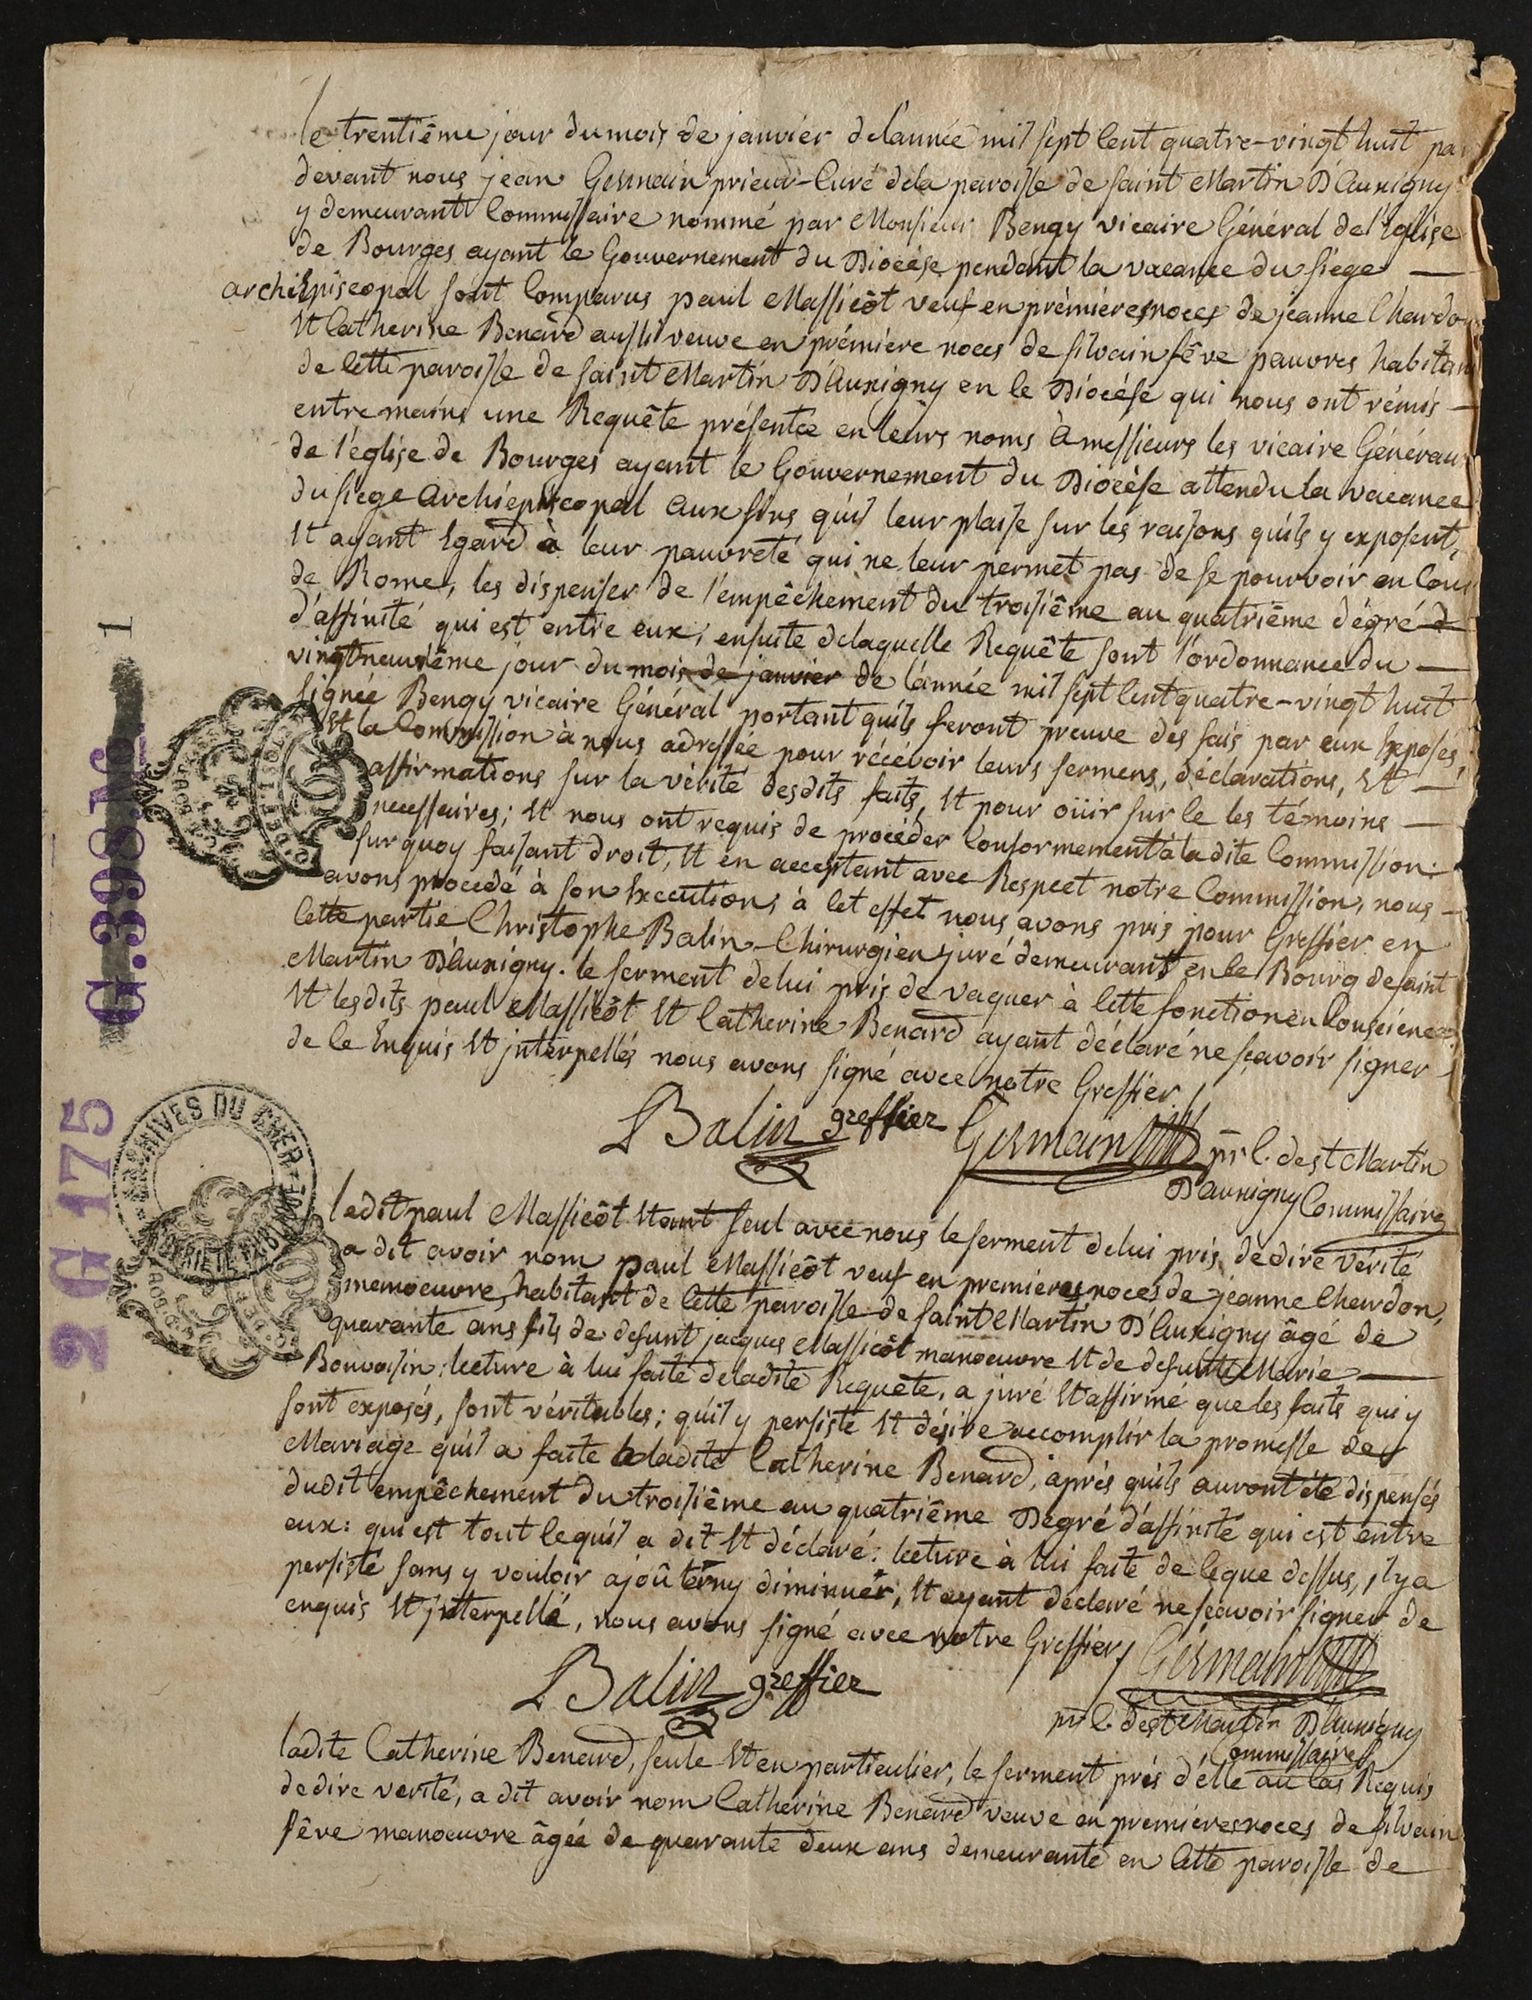 le trentiême jour du mois de janvier de l'année mil sept Cent quatre-vingt huit par
devant nous jean Germain prieur-Curé dela paroisse de saint Martin D'Auxigny
y demeurant Commissaire nommé par Monsieur Bengy vicaire Général de l'Eglise
de Bourges ayant le Gouvernement du Diocèse pendant la vacance du siege —
archiEpiscopal sont Comparus paul Massicôt veuf en prémières noces de jeanne Chardon
Et Catherine Benard aussi veuve en prémière noces de silvain sêve pauvres habitans
de Cette paroisse de saint Martin D'Auxigny en le Diocèse qui nous ont rémis —
entre mains une Requête présentée en leurs noms à messieurs les vicaire Généraux
de l'église de Bourges ayant le Gouvernement du Diocèse attendu la vacance
du siege Archiépiscopal aux fins qu'il leur plaise sur les raisons qu'ils y exposent,
Et ayant Egard à leur pauvreté qui ne leur permet pas de se pourvoir en Cour
de Rome, les dispenser de l'empêchement du troisiême au quatriême dégré d
d'affinité qui est entre eux; ensuite de laquelle Requête sont l'ordonnance du —
vingtneuviême jour du mois de janvier de l'année mil sept Cent quatre-vingt huit
signée Bengy vicaire Général portant qu'ils feront preuve des fais par eux Exposés,
Et la Commission à nous adressée pour récévoir leurs sermens, déclarations, Et —
affirmations sur la vérité desdits faits, Et pour oüir sur le les témoins —
necessaires; Et nous ont requis de procéder Conformement à ladite Commission:
sur quoy faisant droit, Et en acceptant avec Respect notre Commission, nous —
avons procedé à son Execution, à Cet effet nous avons pris pour Greffier en
Cette partie Christophe Balin-Chirurgien juré demeurant en le Bourg de saint
Martin D'Auxigny. le serment de lui pris de vaquer à Cette fonction en Conscience,
Et lesdits paul Massicôt Et Catherine Benard ayant déclaré ne sçavoir signer
de Ce Enquis Et jnterpellés nous avons signé avec notre Greffier
Balin greffier Germain pr C. de st Martin
D'auxigny Commissaire
Ledit paul Massicôt Etant seul avec nous le serment de lui pris de dire vérité
a dit avoir nom paul Massicôt veuf en premieres noces de jeanne Chardon,
menoeuvre habitant de Cette paroisse de saint Martin D'Auxigny âgé de
quarante ans fils de defunt jacques Massicôt manoeuvre Et de defunte Marie —
Bonvoisin: lecture à lui faite de ladite Requête, a juré Et affirmé que les faits qui y
sont exposés, sont véritables; qu'il y persiste Et désire accomplir la promesse de
Mariage qu'il a faite à ladite Catherine Benard, aprés qu'ils auront été dispensés
dudit empêchement du troisiême au quatriême Dégré d'affinité qui est entre
eux: qui est tout le qu'il a dit Et déclaré: lecture à lui faite de Ce que dessus, jl y a
persisté sans y vouloir ajoûter ny diminuer, Et ayant déclaré ne sçavoir signer de
enquis Et jnterpellé, nous avons signé avec notre Greffier
Balin greffier Germain
pr C. de st Martin D'Auxigny
Commissaire
ladite Catherine Benard, seule Et en particulier, le serment pris d'elle au Cas Requis
de dire verité, a dit avoir nom Catherine Benard veuve en premières noces de silvain
sêve manoeuvre âgée de quarante deux ans demeurante en Cette paroisse de
1
G.398.N6
2 G 175
ARCHIVES DU CHER